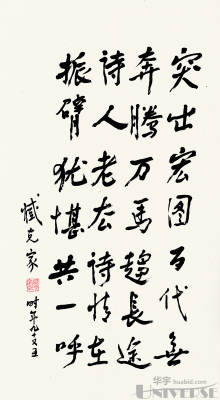 突出宏图百代无
奔腾万马趋长途
诗人老去诗情在
振臂犹堪共一呼
臧克家
时年九十又
华宇 huabid.com
UNIVERSE